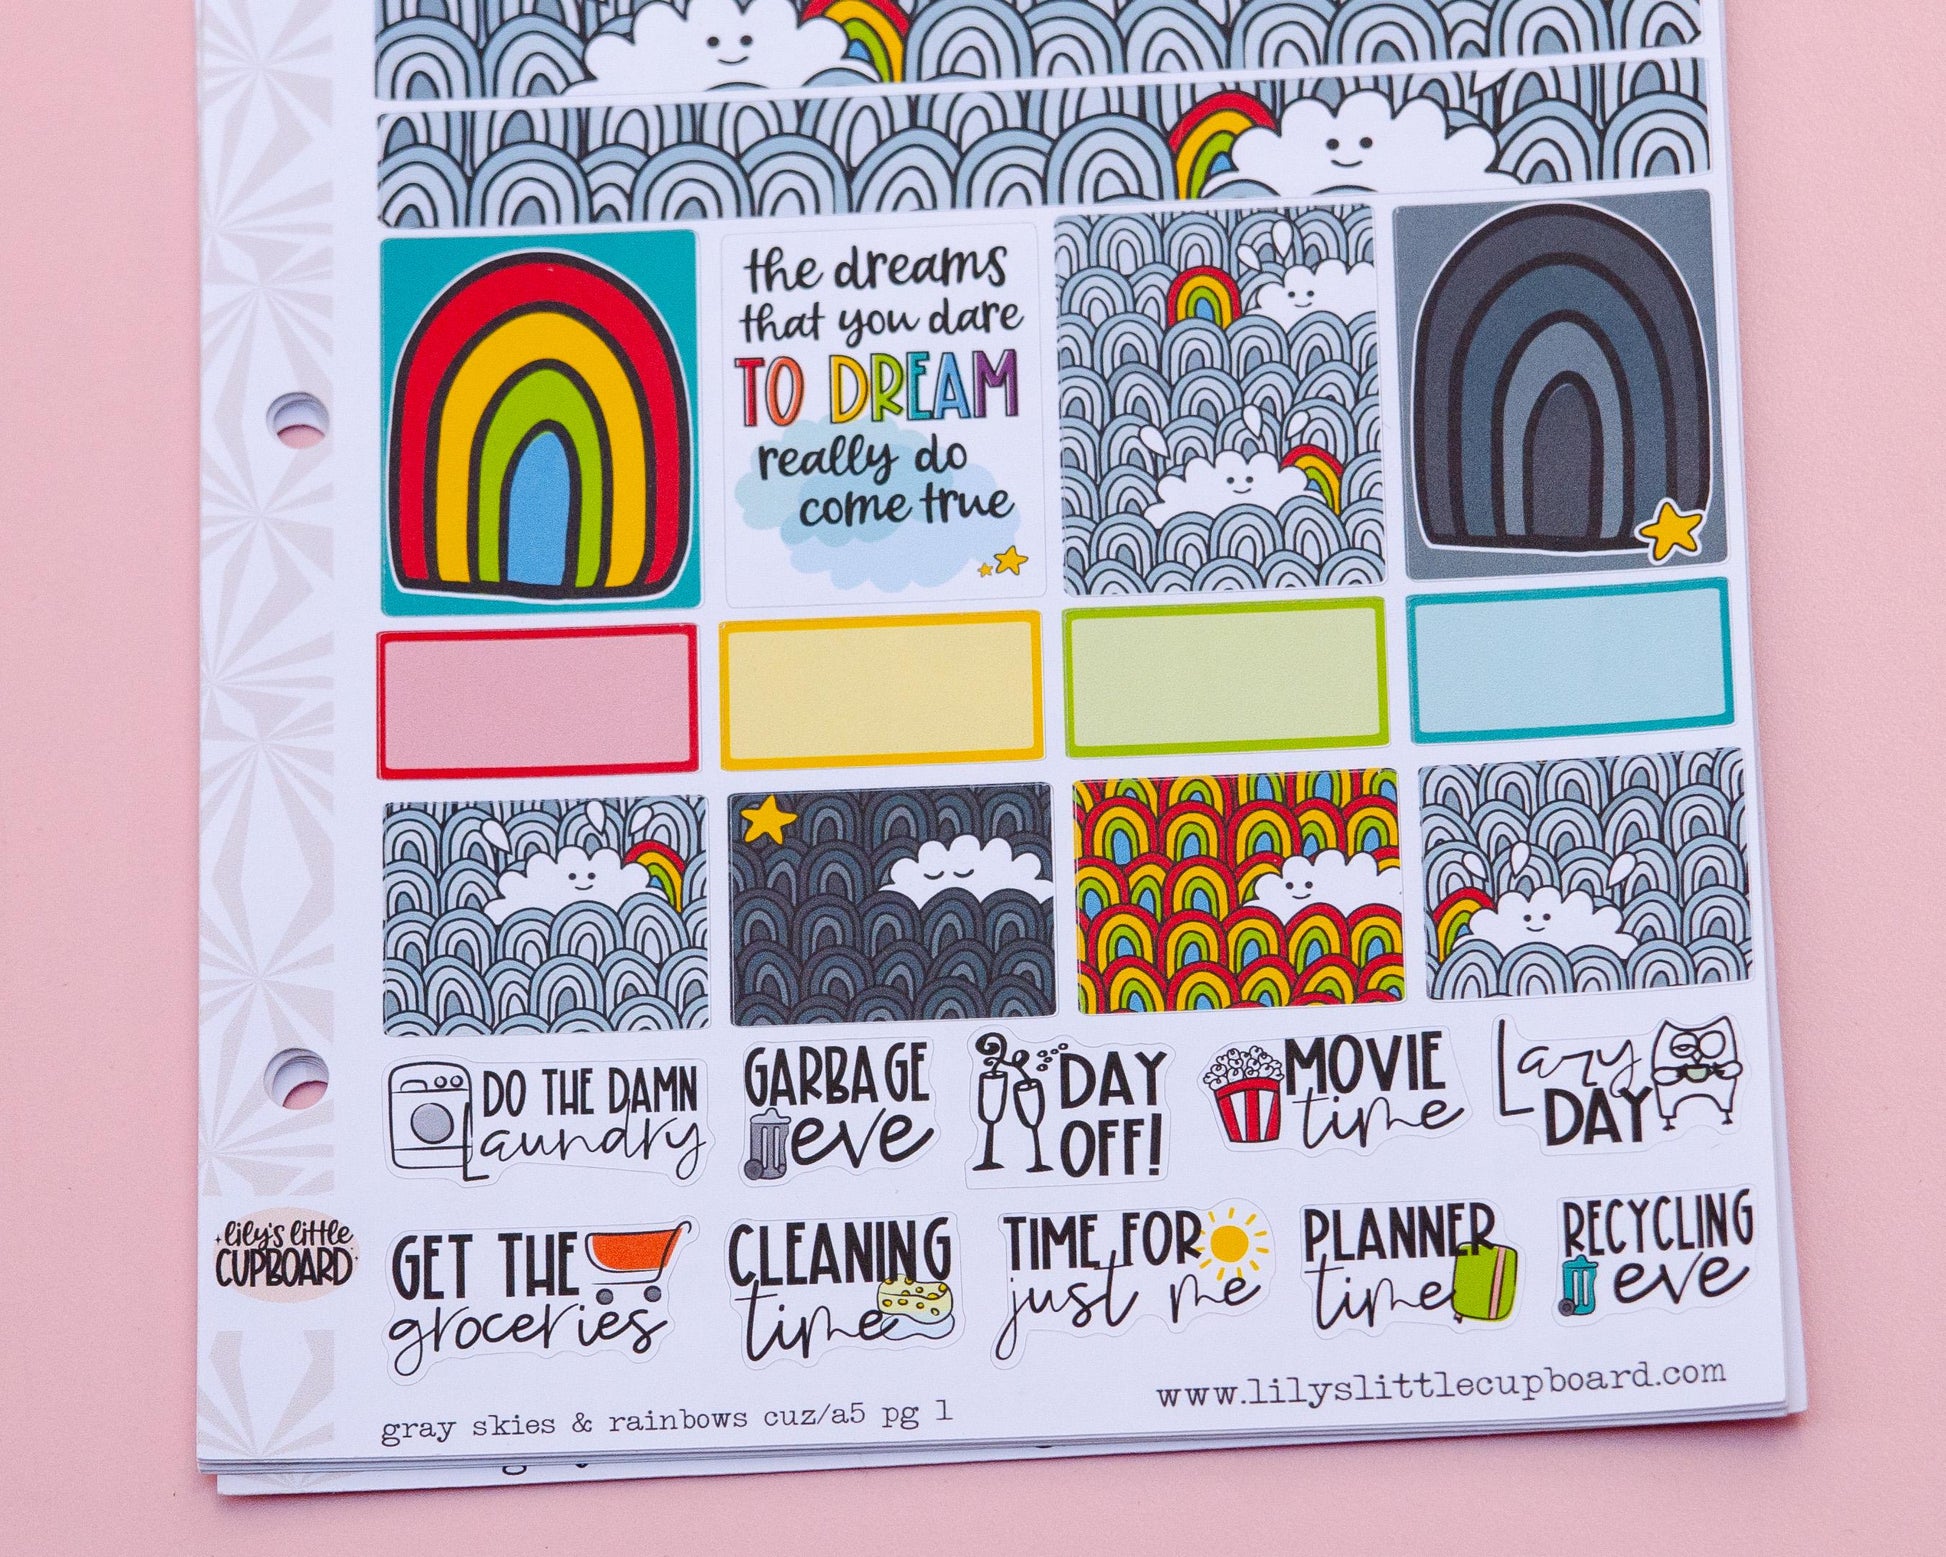 the dreams
that you dare
TO DREAM
really do
come true
DO THE DAMN
Laundry
GARBAGE
eve
DAY
OFF!
MOVIE
time
Lazy
DAY
lily's little
CUPBOARD
GET THE
groceries
CLEANING
time
TIME FOR
just me
PLANNER
time
RECYCLING
eve
gray skies & rainbows cuz/a5 pg 1
www.lilyslittlecupboard.com